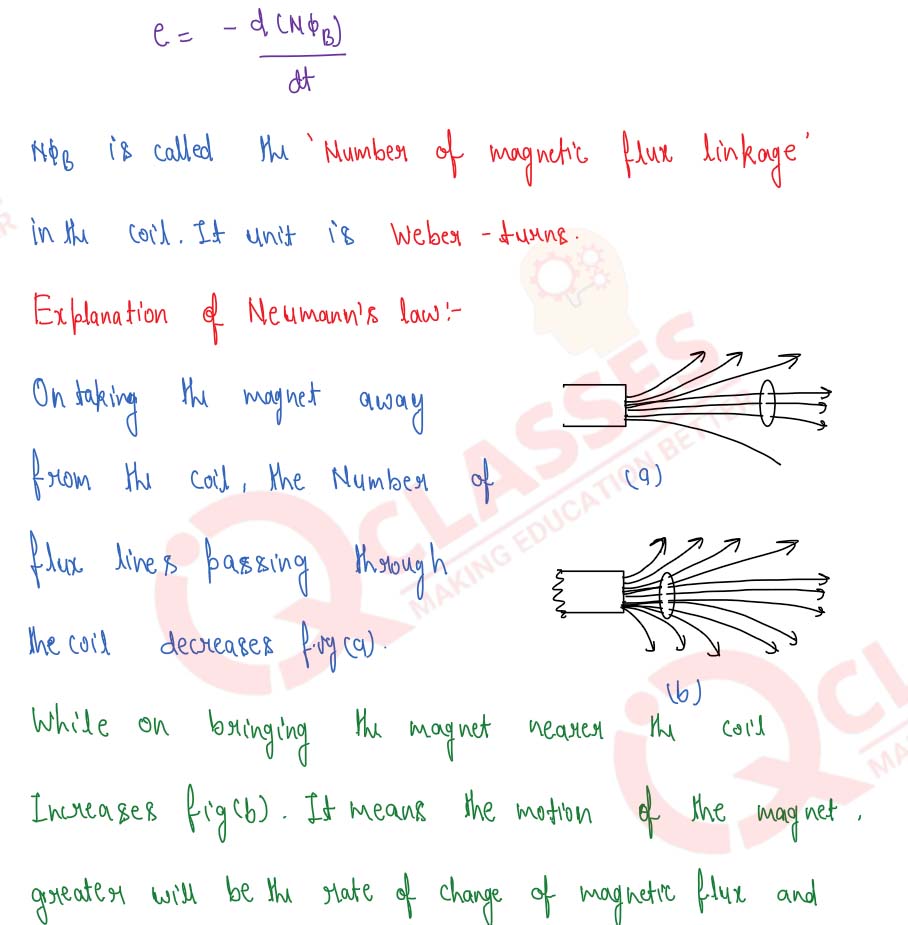 e = - d(NΦB)
dt
NΦB is called the 'Number of magnetic flux linkage'
in the coil. It unit is Weber - turns.
Explanation of Neumann's law:-
On taking the magnet away
from the coil, the Number of
(a)
flux lines passing through
the coil decreases fig(a).
(b)
While on bringing the magnet nearer the coil
Increases fig(b). It means the motion of the magnet,
greater will be the rate of change of magnetic flux and
iQ CLASSES
MAKING EDUCATION BETTER
iQ CL
MA
R